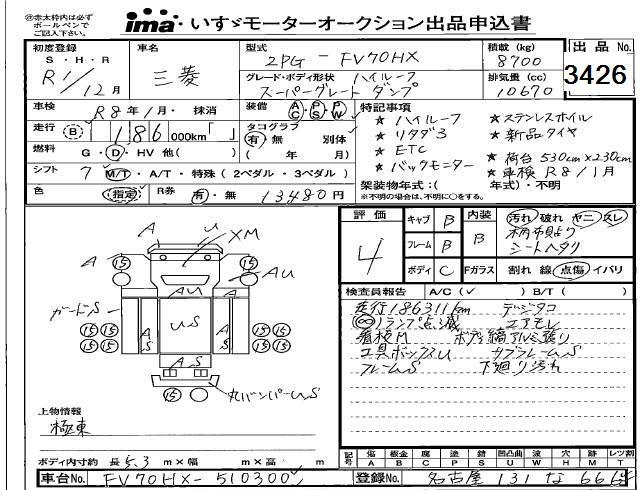 ㊟赤太枠内は必ず
ボールペンで
ご記入下さい。
ima いすゞモーターオークション出品申込書
初度登録
S・H・R
R1/12月
車名
三菱
型式
2PG - FV70HX
積載 (kg)
8700
出品No.
3426
グレード・ボディ形状 ハイルーフ
スーパーグレート ダンプ
排気量 (cc)
10670
車検
R8年1月・抹消
装備
AC・PS・PW
特記事項
★ ハイルーフ
★ リタダ3
★ ETC
★ バックモニター
★ ステンレスホイル
★ 新品タイヤ
★ 荷台 530cm×230cm
★ 車検 R8/1月
走行 B 186 000km「 」
タコグラフ
有・無 別体
( 年 月)
燃料
G・D・HV 他( )
シフト
7 M/T・A/T・特殊(2ペダル・3ペダル)
架装物年式:( 年式)・不明
※不明の場合は、不明に○をする。
色
(指定)
R券
有・無 13480円
評価
4
キャブ B
フレーム B
ボディ C
内装
B
汚れ 破れ ヤニ スレ
柄布貼り
シートヘタリ
Fガラス
割れ 線 点傷 イバリ
検査員報告 A/C(✓ ) B/T( )
走行186311km デジタコ
ランプ点滅 エアモレ
看板M ボデー縞アルミ張り
工具ボックスU サブフレームS
フレームS 下廻り汚れ
A
U
XM
A
15
15
AU
AU
ガードS
A
S
US
A
S
15 15
15 15
15 15
15 15
A S
15
丸バンパーUS
上物情報
極東
ボディ内寸約 長 5.3 m×幅 m×高 m
記号
傷 板金 腐 塗 錆 凹凸曲 波 穴 跡 レツ割
A B C P S U W H M T
車台No. FV70HX-510300
登録No. 名古屋 131 な 6664